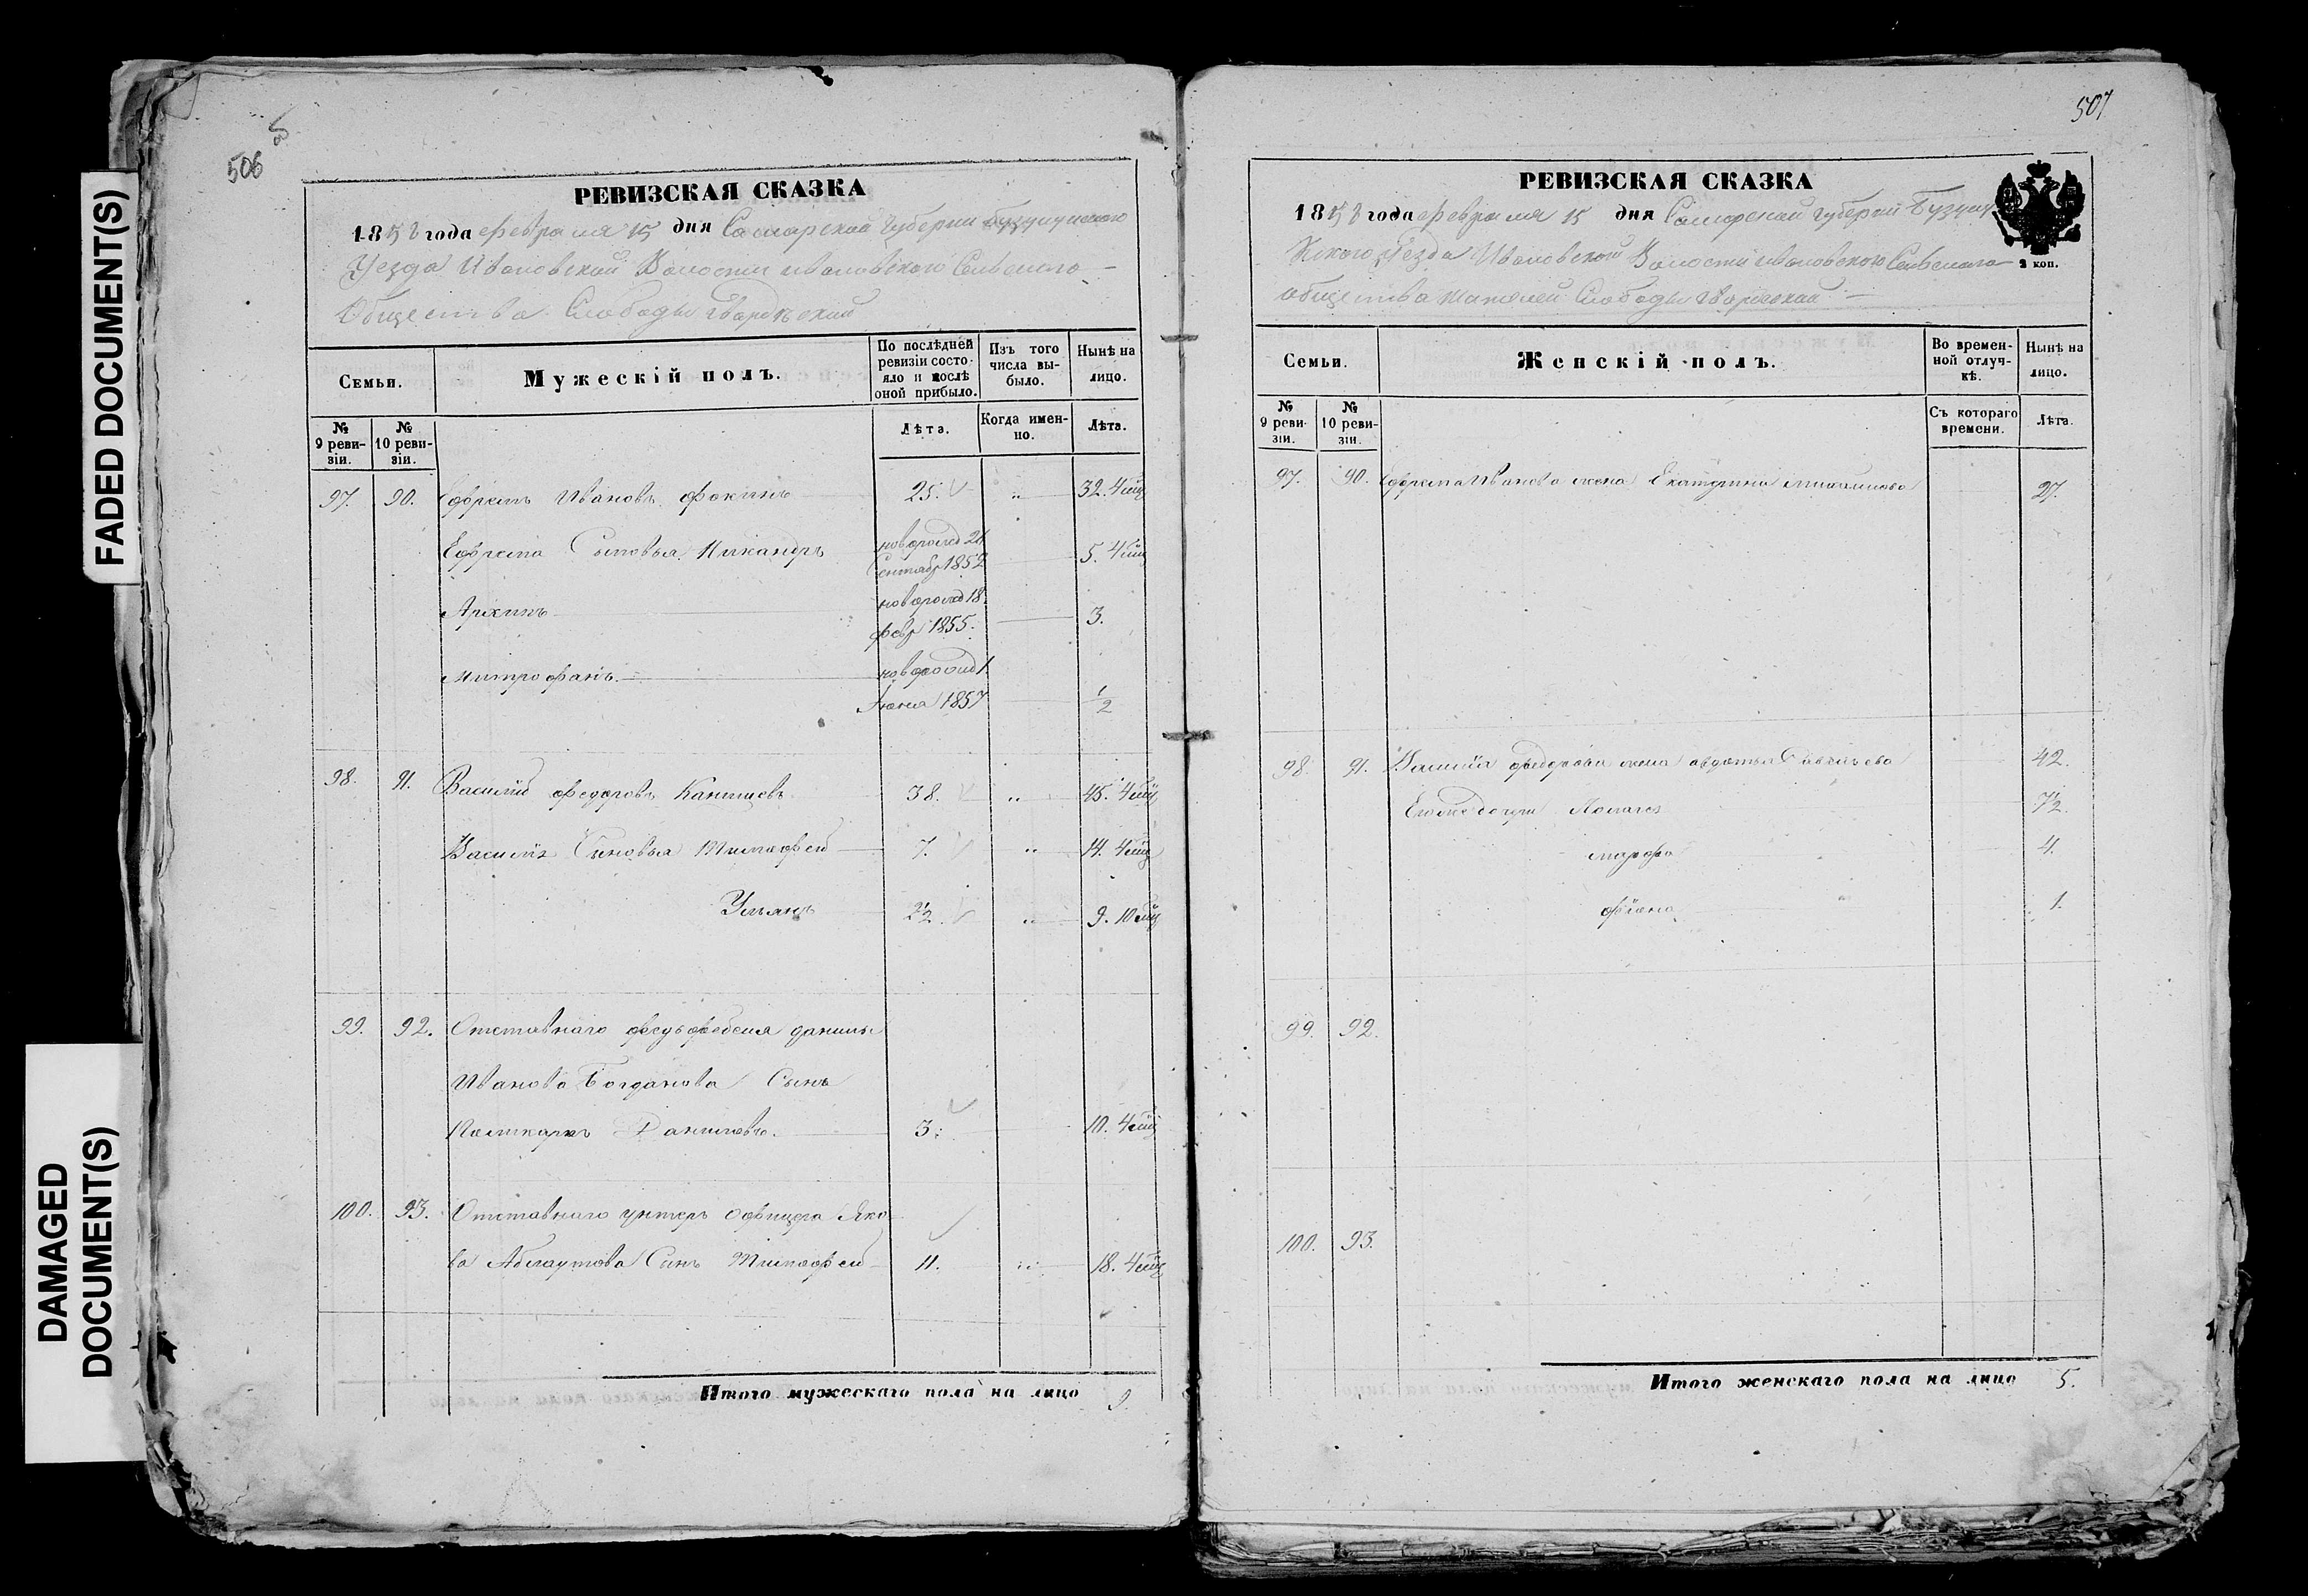 FADED DOCUMENT(S)
DAMAGED
DOCUMENT(S)
506
РЕВИЗСКАЯ СКАЗКА
1858 года февраля 15 дня Самарской Губернии Бузулукского
Уезда Ивановской Волости Ивановского Сельского
Общества Слободы Гвардейской
Семьи.
Мужескій полъ.
По послѣдней ревизіи состояло и послѣ оной прибыло.
Изъ того числа выбыло.
Нынѣ на лицо.
№ 9 ревизіи.
№ 10 ревизіи.
Лѣта.
Когда именно.
Лѣта.
97. 90. Ефремъ Ивановъ Фокинъ 25. „ 32. 4 мц
Ефрема Сыновья Никандръ новорожд 21 Сентябр 1852 5. 4 мц
Архипъ новорожд 18 февр 1855. 3.
Митрофанъ новорожд 1 Июня 1857 1/2
98. 91. Василий Федоровъ Канищевъ 38. „ 45. 4 мц
Василия Сыновья Тимофей 7. „ 14. 4 мц
Ульянъ 2 1/2 „ 9. 10 мц
99. 92. Отставнаго фельдфебеля Данилы
Иванова Богданова Сынъ
Поликарпъ Даниловъ. 3. 10. 4 мц
100. 93. Отставнаго унтеръ офицера Яко-
ва Сынъ Тимофей 11. „ 18. 4 мц
Итого мужескаго пола на лицо 9
507
РЕВИЗСКАЯ СКАЗКА
1858 года февраля 15 дня Самарской губернии Бузулу
кского Уезда Ивановской Волости Ивановского Сельского
2 коп.
общества жителей Слободы Гвардейской
Семьи.
Женскій полъ.
Во временной отлучкѣ.
Нынѣ на лицо.
№ 9 ревизіи.
№ 10 ревизіи.
Съ котораго времени.
Лѣта.
97. 90. Ефрема Иванова жена Екатерина Михайлова 27.
98. 91. Василия Федорова жена Авдотья 42.
7 1/2
марфа 4.
1.
99. 92.
100. 93.
Итого женскаго пола на лицо 5.